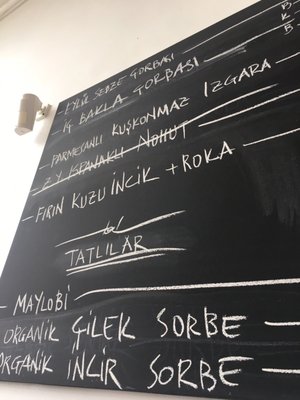 - EYLÜL SEBZE ÇORBASI
- İÇ BAKLA ÇORBASI
- PARMESANLI KUŞKONMAZ IZGARA
- Z.Y ISPANAKLI NOHUT
- FIRIN KUZU İNCİK + ROKA
TATLILAR
- MAYLOBİ
ORGANİK ÇİLEK SORBE -
ORGANİK İNCİR SORBE -